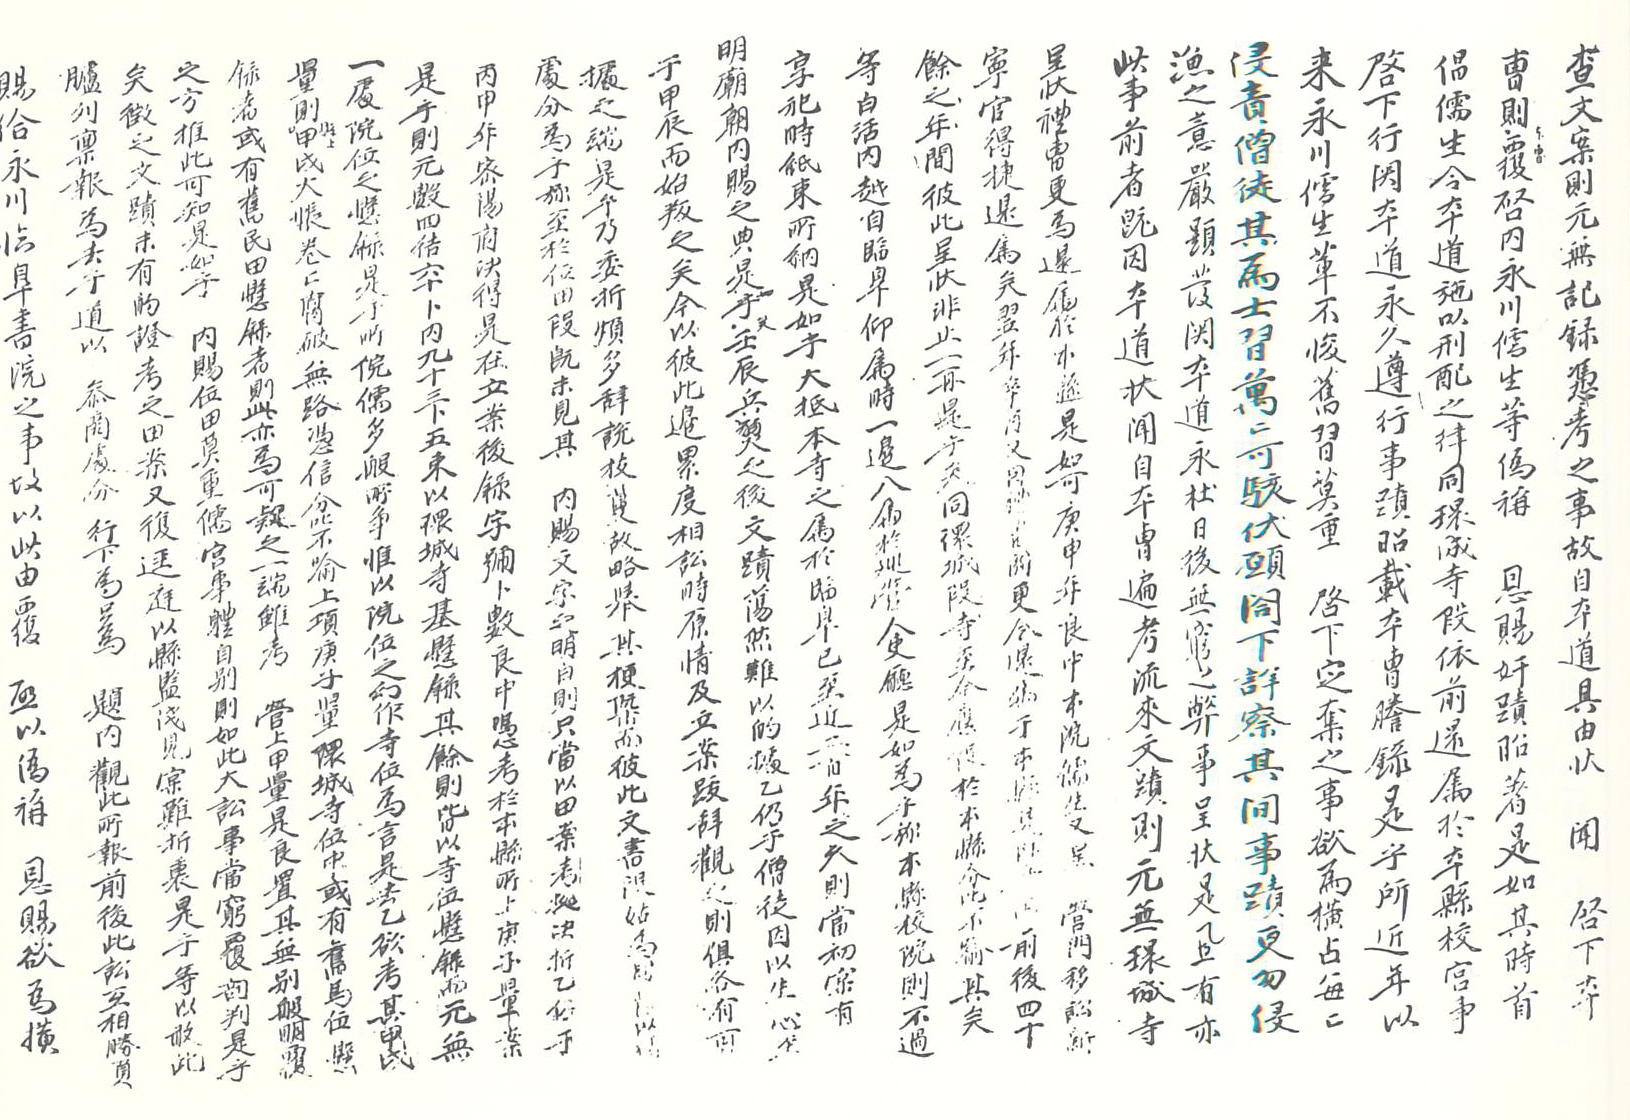 查文案則元無記錄憑考之事故自本道具由狀 聞 啓下本
曹則覆啓內永川儒生等僞稱 恩賜奸蹟昭著是如其時首
倡儒生令本道施以刑配之律同環城寺段依前還屬於本縣校宮事
啓下行関本道永久遵行事蹟昭載本曹謄錄是乎所近年以
來永川儒生輩不悛舊習莫重 啓下定奪之事欲爲橫占每亡
侵責僧徒其爲士習萬亡可駭伏願閤下詳察其間事蹟更勿侵
漁之意嚴題發関本道永杜日後無窮之弊事呈狀是置有亦
此事前者旣因本道狀聞自本曹遍考流來文蹟則元無環城寺
呈狀禮曹更爲還屬於本縣是如可庚申年良中本院儒生又呈 營門移訟新
寧官得捷還屬矣翌年 前後四十
餘之年間彼此呈狀非止一再是乎矣同環城段寺至今應役於本縣分叱不喩其矣
等白活內越自臨皐仰屬時一邊入屬於 使廳是如爲乎旀本縣校院則不過
享祀時紙束所納是如乎大抵本寺之屬於臨皐已至近二百年之久則當初案有
明廟朝內賜之典是乎矣壬辰兵燹之後文蹟蕩然難以的據乙仍乎僧徒因以生心
于甲辰而始叛之矣今以彼此退累度相訟時原情及立案跋辭觀之則俱各有可
據之端是乎乃委折煩多辭說枝蔓故略擧其梗槩而彼此文書段姑爲
處分爲乎旀至於位田段旣未見其 內賜文字的明白則只當以田案考
丙申年密陽府決得是在立案後錄字號卜數良中憑考於本縣所上庚子量案
是乎則元數四結六十卜內九十三卜五束以環城寺基懸錄其餘則皆以寺位懸錄而元無
一處院位之懸錄是乎所院儒多般所爭惟以院位之幻作寺位爲言是去乙欲考其甲戌
量則甲戌大帳卷亡腐破無路憑信分叱不喩上項庚子量環城寺位中或有舊馬位懸
錄者或有舊民田懸錄者則此亦爲可疑之一端雖考 營上甲量是良置其無別般明覈
之方推此可知是如乎 內賜位田莫重儒宮事體自別則如此大訟事當窮覈剖判是乎
矣徵之文蹟未有的證考之田案又復逕庭以縣監淺見案難折衷是乎等以敢此
臚列稟報爲去乎道以 參商處分 行下爲只爲 題內觀此所報前後此訟互相勝負
賜給永川臨皐書院之事故以此由覆 啓以僞稱 恩賜欲爲橫